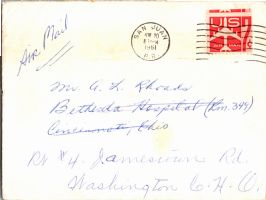 Air Mail
SAN JUAN
1961
P.R.
Mr. A. L. Rhoads
Bethesda Hospital (Rm. 344)
Cincinnati, Ohio
Rt #4 Jamestown Rd.
Washington C. H. O.